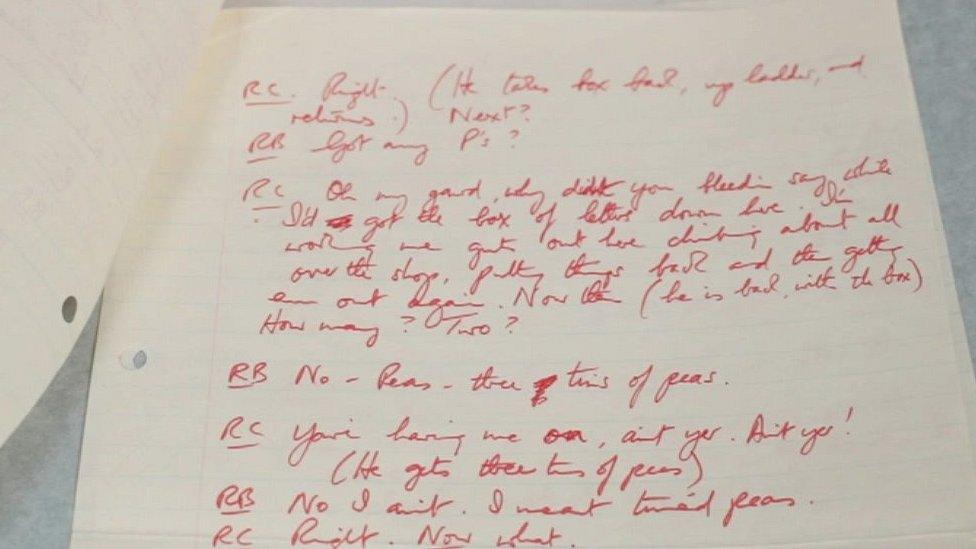 RC. Right. (He takes box back, up ladder, and
returns.) Next?
RB Got any P's?
RC Oh my gawd, why didn't you bleedin say, while
I'd got the box of letters down here. I'm
working me guts out here climbing about all
over the shop, putting things back and then getting
em out again. Now then (he is back, with the box)
How many? Two?
RB No - Peas - three tins of peas.
RC You're having me on, aint yer. Aint yer!
(He gets three tins of peas)
RB No I ain't. I meant tinned peas.
RC Right. Now what.